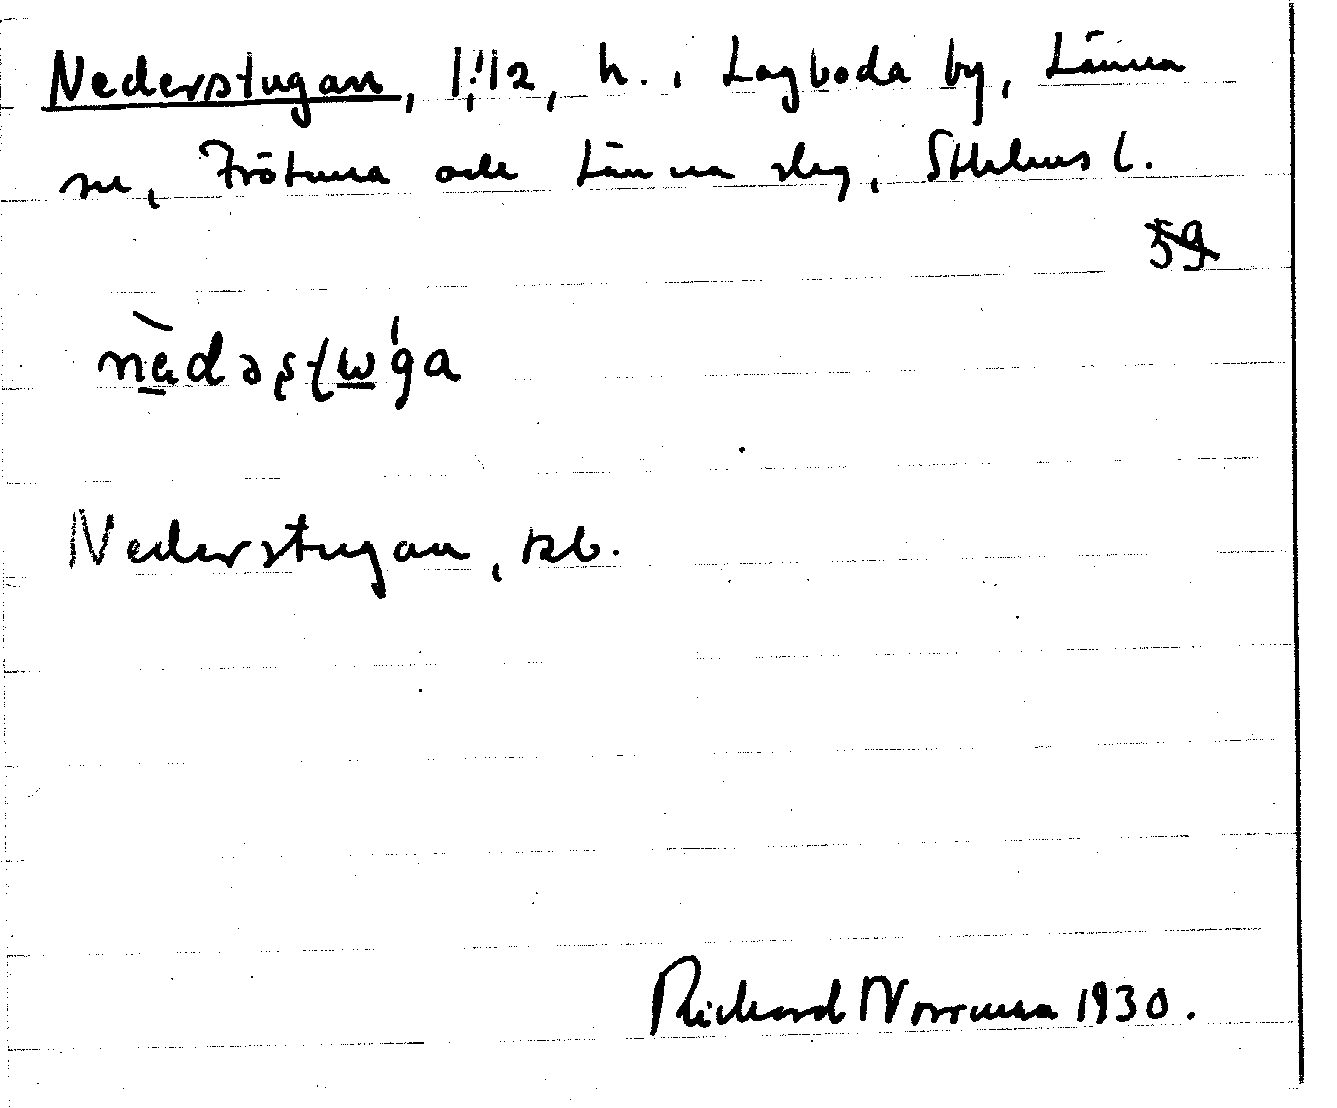 Nederstugan, 1:12, h. i Lagboda by, Länna
sn, Frötuna och Länna slg, Sthlms l.
59
nèdəʂʈω'ga
Nederstugan, kb.
Richard Norrman 1930.